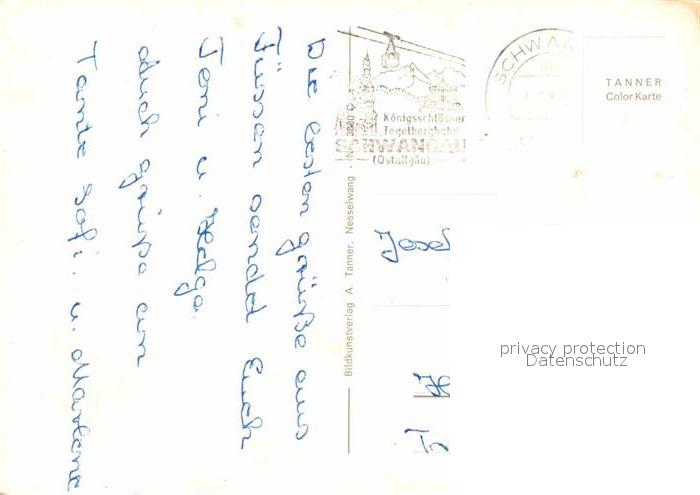 Die besten grüße aus
Füssen sendet Euch
Toni u. Helga.
Auch grüße an
Tante Sofi. u. Marlene
Bildkunstverlag A. Tanner, Nesselwang
Königsschlösser
Tegelbergbahn
SCHWANGAU
(Ostallgäu)
SCHWAN
TANNER
Color Karte
Josef
privacy protection
Datenschutz